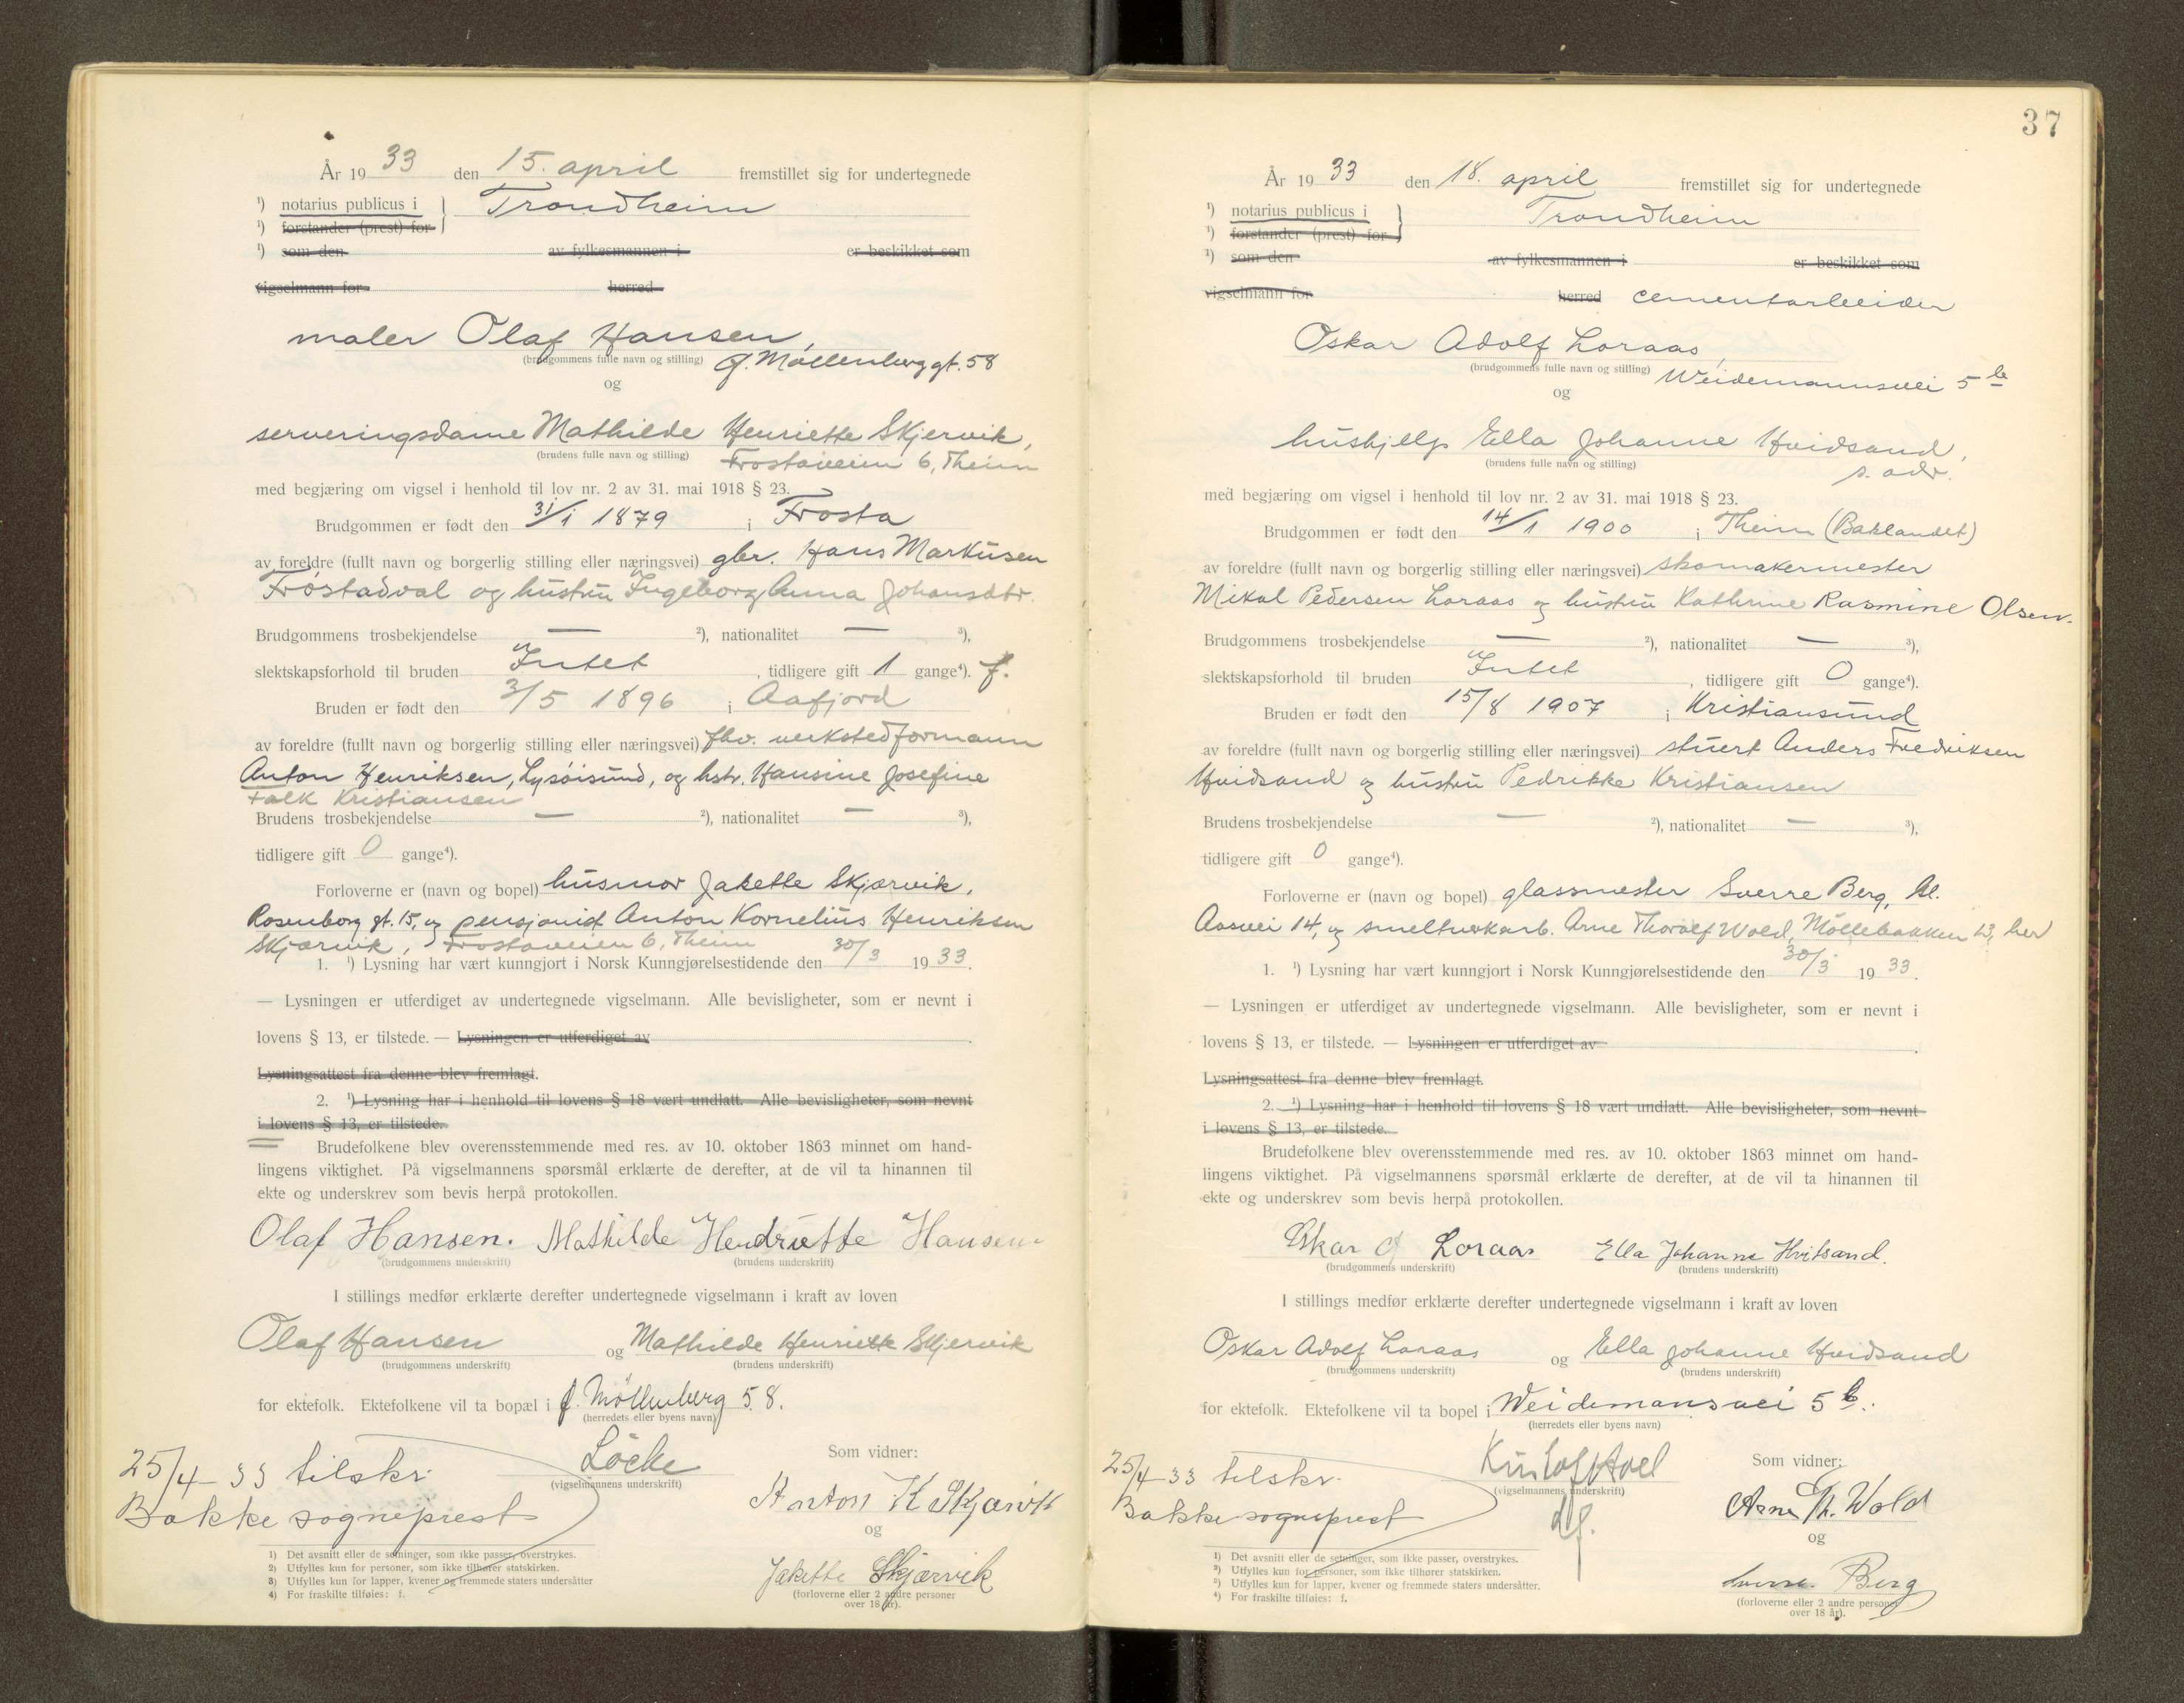 År 19 33 den 15. april fremstillet sig for undertegnede
1) notarius publicus i Trondheim
1) forstander (prest) for
1) som den av fylkesmannen i er beskikket som
vigselmann for herred
maler Olaf Hansen,
(brudgommens fulle navn og stilling) Ø. Møllenberg gt. 58
og
serveringsdame Mathilde Henriette Skjervik,
(brudens fulle navn og stilling) Frostaveien 6, Theim
med begjæring om vigsel i henhold til lov nr. 2 av 31. mai 1918 § 23.
Brudgommen er født den 31/1 1879 i Frosta
av foreldre (fullt navn og borgerlig stilling eller næringsvei) gbr. Hans Markusen
Frøstadval og hustru Ingeborg Anna Johansdtr.
Brudgommens trosbekjendelse — 2), nationalitet — 3),
slektskapsforhold til bruden Intet, tidligere gift 1 gange4). f.
Bruden er født den 3/5 1896 i Aafjord
av foreldre (fullt navn og borgerlig stilling eller næringsvei) fhv. verkstedformann
Anton Henriksen, Lysøisund, og hstr. Hansine Josefine
Falk Kristiansen
Brudens trosbekjendelse — 2), nationalitet — 3),
tidligere gift 0 gange4).
Forloverne er (navn og bopel) husmor Jakette Skjærvik,
Rosenborg gt. 15, og pensjonist Anton Kornelius Henriksen
Skjærvik, Frostaveien 6, Theim
1. 1) Lysning har vært kunngjort i Norsk Kunngjørelsestidende den 30/3 1933.
— Lysningen er utferdiget av undertegnede vigselmann. Alle bevisligheter, som er nevnt i
lovens § 13, er tilstede. — Lysningen er utferdiget av
Lysningsattest fra denne blev fremlagt.
2. 1) Lysning har i henhold til lovens § 18 vært undlatt. Alle bevisligheter, som nevnt
i lovens § 13, er tilstede.
Brudefolkene blev overensstemmende med res. av 10. oktober 1863 minnet om hand-
lingens viktighet. På vigselmannens spørsmål erklærte de derefter, at de vil ta hinannen til
ekte og underskrev som bevis herpå protokollen.
Olaf Hansen. Mathilde Hendriette Hansen.
(brudgommens underskrift) (brudens underskrift)
I stillings medfør erklærte derefter undertegnede vigselmann i kraft av loven
Olaf Hansen og Mathilde Henriette Skjervik
(brudgommens underskrift) (brudens underskrift)
for ektefolk. Ektefolkene vil ta bopæl i Ø. Møllenberg 58.
(herredets eller byens navn)
25/4-33 tilskr. Løcke Som vidner:
(vigselmannens underskrift)
Bakke sogneprest Anton K Skjærvik
og
Jakette Skjærvik
(forloverne eller 2 andre personer
over 18 år).
1) Det avsnitt eller de setninger, som ikke passer, overstrykes.
2) Utfylles kun for personer, som ikke tilhører statskirken.
3) Utfylles kun for lapper, kvener og fremmede staters undersåtter
4) For fraskilte tilføies: f.
37
År 19 33 den 18. april fremstillet sig for undertegnede
1) notarius publicus i Trondheim
1) forstander (prest) for
1) som den av fylkesmannen i er beskikket som
vigselmann for herred cementarbeider
Oskar Adolf Loraas,
(brudgommens fulle navn og stilling) Weidemannsvei 5 b
og
husbjelp Ella Johanne Hvidsand,
(brudens fulle navn og stilling) s. adr.
med begjæring om vigsel i henhold til lov nr. 2 av 31. mai 1918 § 23.
Brudgommen er født den 14/1 1900 i Theim (Baklandet)
av foreldre (fullt navn og borgerlig stilling eller næringsvei) skomakermester
Mikal Pedersen Loraas og hustru Kathrine Rasmine Olsen.
Brudgommens trosbekjendelse — 2), nationalitet — 3),
slektskapsforhold til bruden Intet, tidligere gift 0 gange4).
Bruden er født den 15/8 1907 i Kristiansund
av foreldre (fullt navn og borgerlig stilling eller næringsvei) stuert Anders Fredriksen
Hvidsand og hustru Pedrikke Kristiansen
Brudens trosbekjendelse — 2), nationalitet — 3),
tidligere gift 0 gange4).
Forloverne er (navn og bopel) glassmester Sverre Berg, Kl.
Aasvei 14, og smeltverkarb. Arne Thoralf Wold, Møllebakken 13, her
1. 1) Lysning har vært kunngjort i Norsk Kunngjørelsestidende den 30/3 1933.
— Lysningen er utferdiget av undertegnede vigselmann. Alle bevisligheter, som er nevnt i
lovens § 13, er tilstede. — Lysningen er utferdiget av
Lysningsattest fra denne blev fremlagt.
2. 1) Lysning har i henhold til lovens § 18 vært undlatt. Alle bevisligheter, som nevnt
i lovens § 13, er tilstede.
Brudefolkene blev overensstemmende med res. av 10. oktober 1863 minnet om hand-
lingens viktighet. På vigselmannens spørsmål erklærte de derefter, at de vil ta hinannen til
ekte og underskrev som bevis herpå protokollen.
Oskar A Loraas Ella Johanne Hvitsand.
(brudgommens underskrift) (brudens underskrift)
I stillings medfør erklærte derefter undertegnede vigselmann i kraft av loven
Oskar Adolf Loraas og Ella Johanne Hvidsand
(brudgommens underskrift) (brudens underskrift)
for ektefolk. Ektefolkene vil ta bopel i Weidemansvei 5 b.
(herredets eller byens navn)
25/4-33 tilskr. Som vidner:
(vigselmannens underskrift)
Bakke sogneprest Arne Th. Wold
og
Sverre Berg
(forloverne eller 2 andre personer
over 18 år).
1) Det avsnitt eller de setninger, som ikke passer, overstrykes.
2) Utfylles kun for personer, som ikke tilhører statskirken.
3) Utfylles kun for lapper, kvener og fremmede staters undersåtter.
4) For fraskilte tilføies: f.